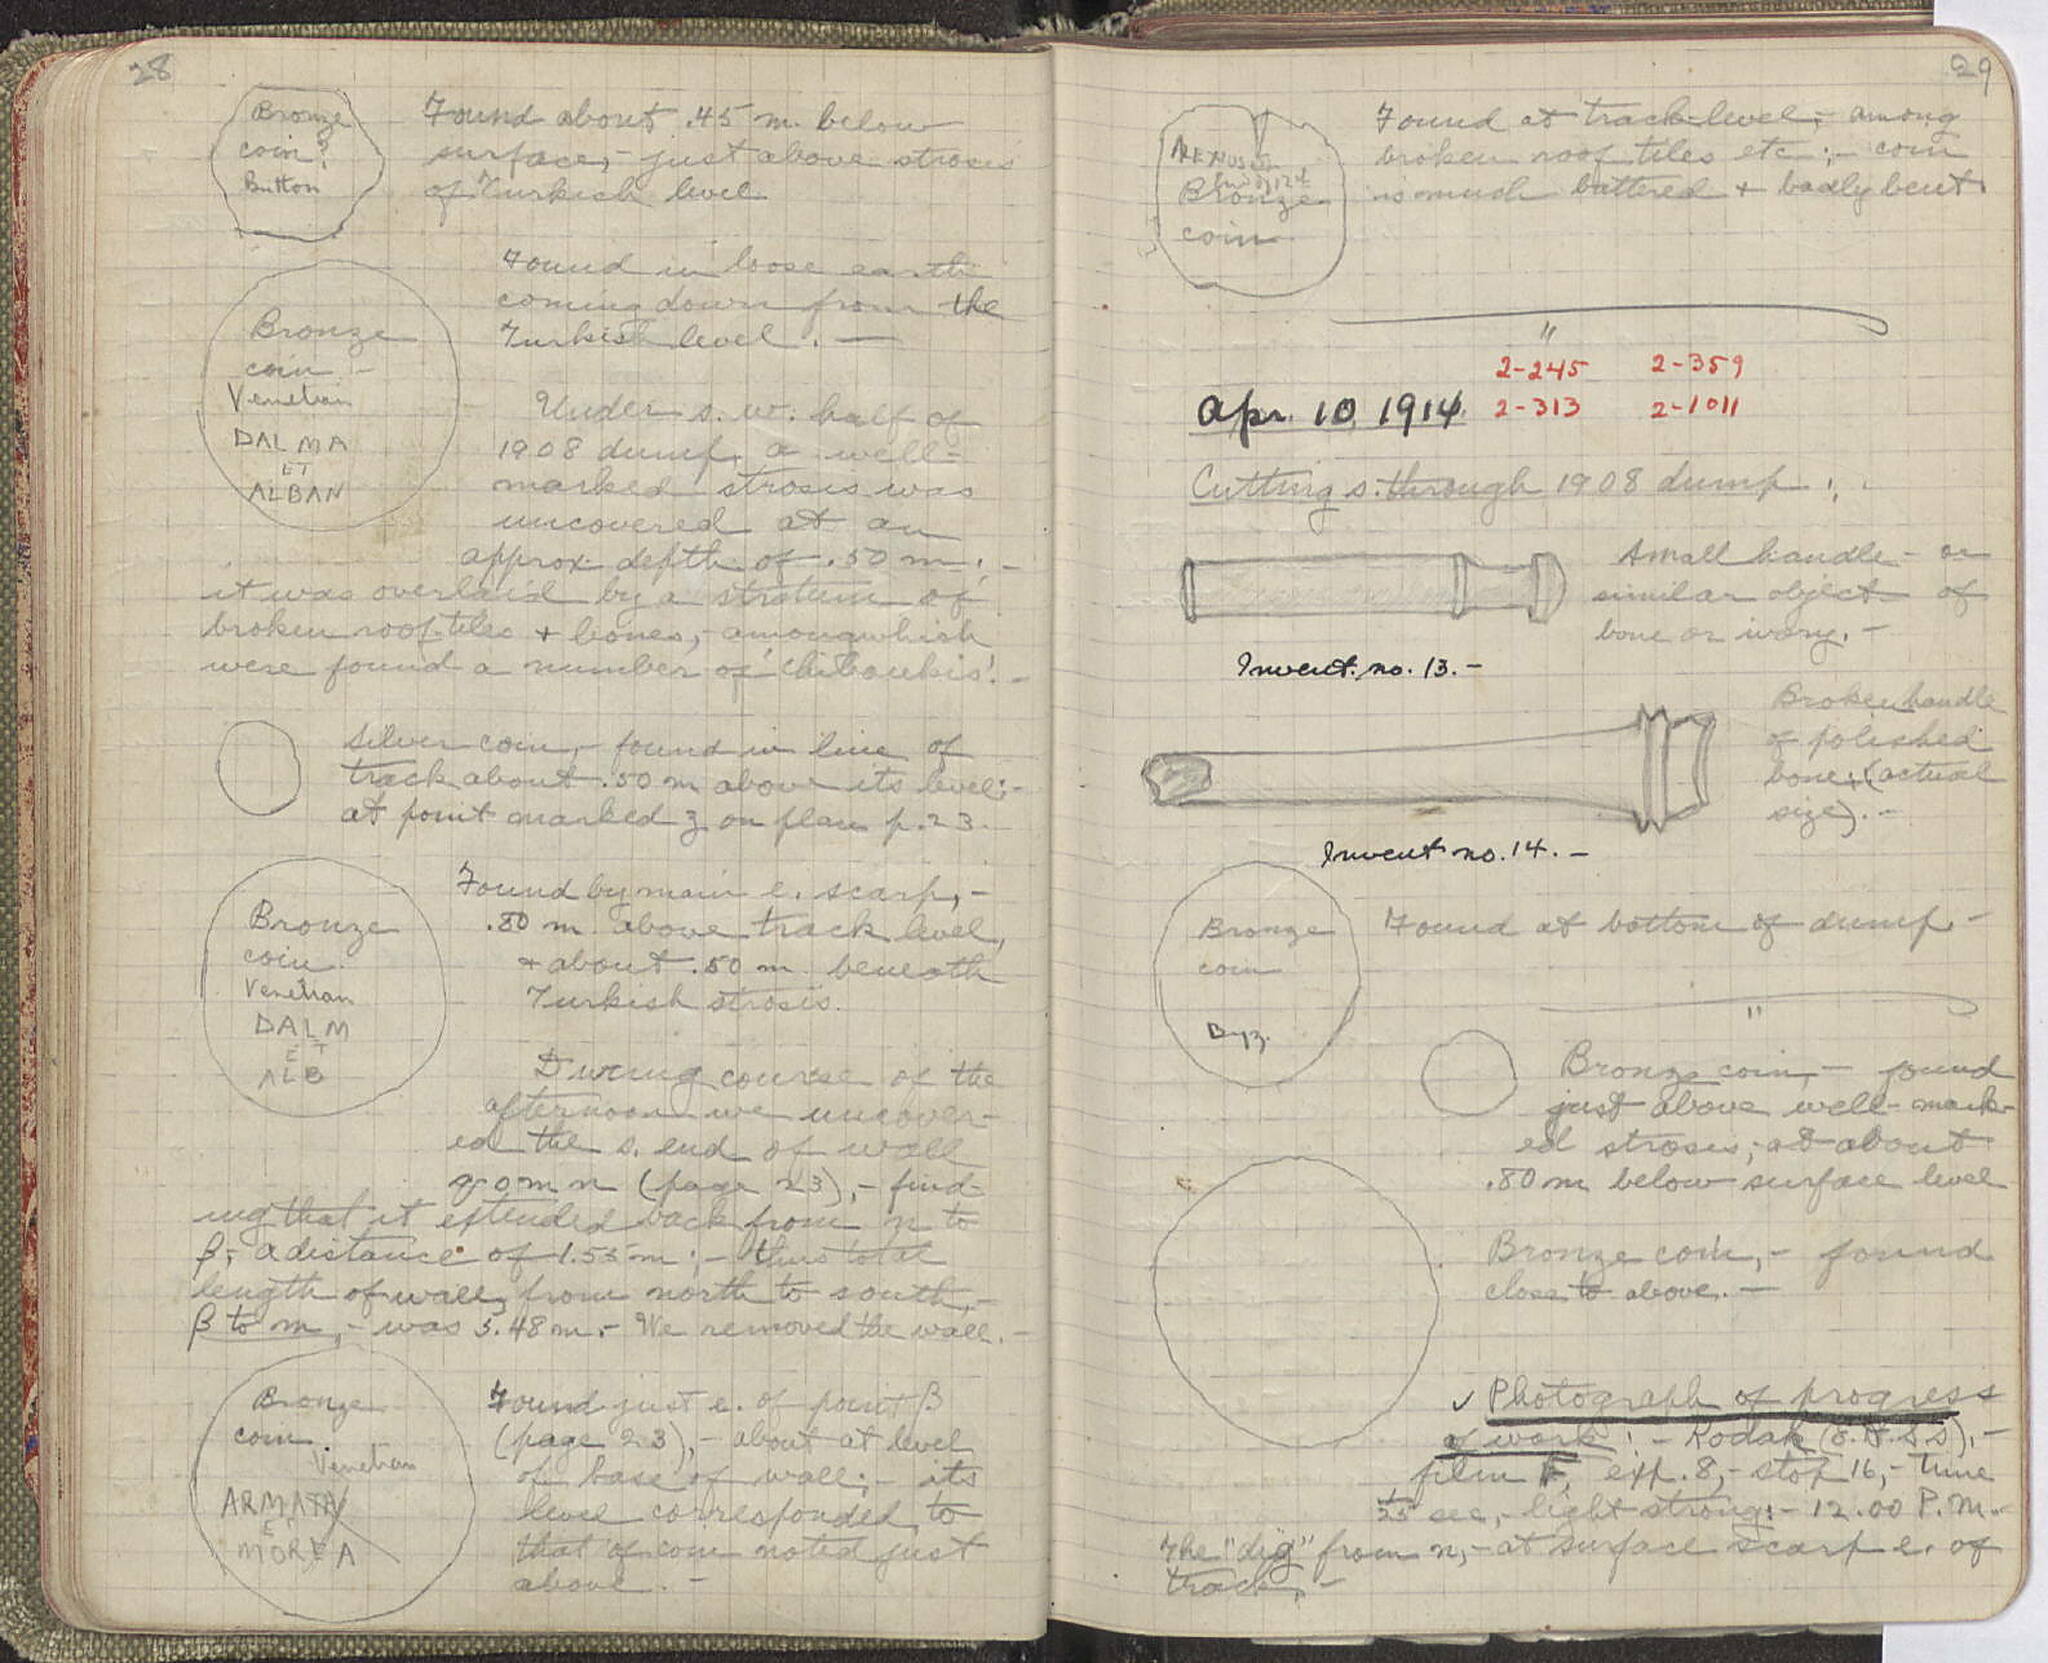 28
Bronze
coin?
Button
Found about .45 m. below
surface, - just above strosis
of Turkish level
Bronze
coin -
Venetian
DALMA
ET
ALBAN
Found in loose earth
coming down from the
Turkish level. —
Under s. w. half of
1908 dump, a well-
marked strosis was
uncovered at an
approx. depth of .50 m; -
it was overlaid by a stratum of
broken roof tiles + bones, - among which
were found a number of 'chiboukis'. -
Silver coin, - found in line of
track about .50 m above its level; -
at point marked z on plan p. 23.
Bronze
coin.
Venetian
DALM
ET
ALB
Found by main e. scarp, -
.80 m above track level,
+ about .50 m. beneath
Turkish strosis.
During course of the
afternoon we uncover-
ed the s. end of wall
g o m n (page 23), - find-
ing that it extended back from n to
β, a distance of 1.55 m; - thus total
length of wall, from north to south, -
β to m, - was 5.48 m. - We removed the wall. -
Bronze
coin.
Venetian
ARMATA
ET
MOREA
Found just e. of point β
(page 23), - about at level
of base of wall; - its
level corresponded to
that of coin noted just
above. -
29
Bronze
coin
Found at track level, - among
broken roof tiles etc; - coin
is much battered + badly bent.
"
2-245 2-359
Apr. 10, 1914. 2-313 2-1011
Cutting s. through 1908 dump:
Small handle - or
similar object of
bone or ivory. -
Invent. no. 13. -
Broken handle
of polished
bone; (actual
size). -
Invent no. 14. -
Bronze
coin
Byz.
Found at bottom of dump. -
"
Bronze coin, - found
just above well-mark-
ed strosis, at about
.80 m below surface level
Bronze coin, - found
close to above. —
✓ Photograph of progress
of work: - Kodak, -
film F, exp. 8, - stop 16, - time
1/25 sec, - light strong: - 12.00 P.M. -
the "dig" from n, - at surface scarp e. of
track. -